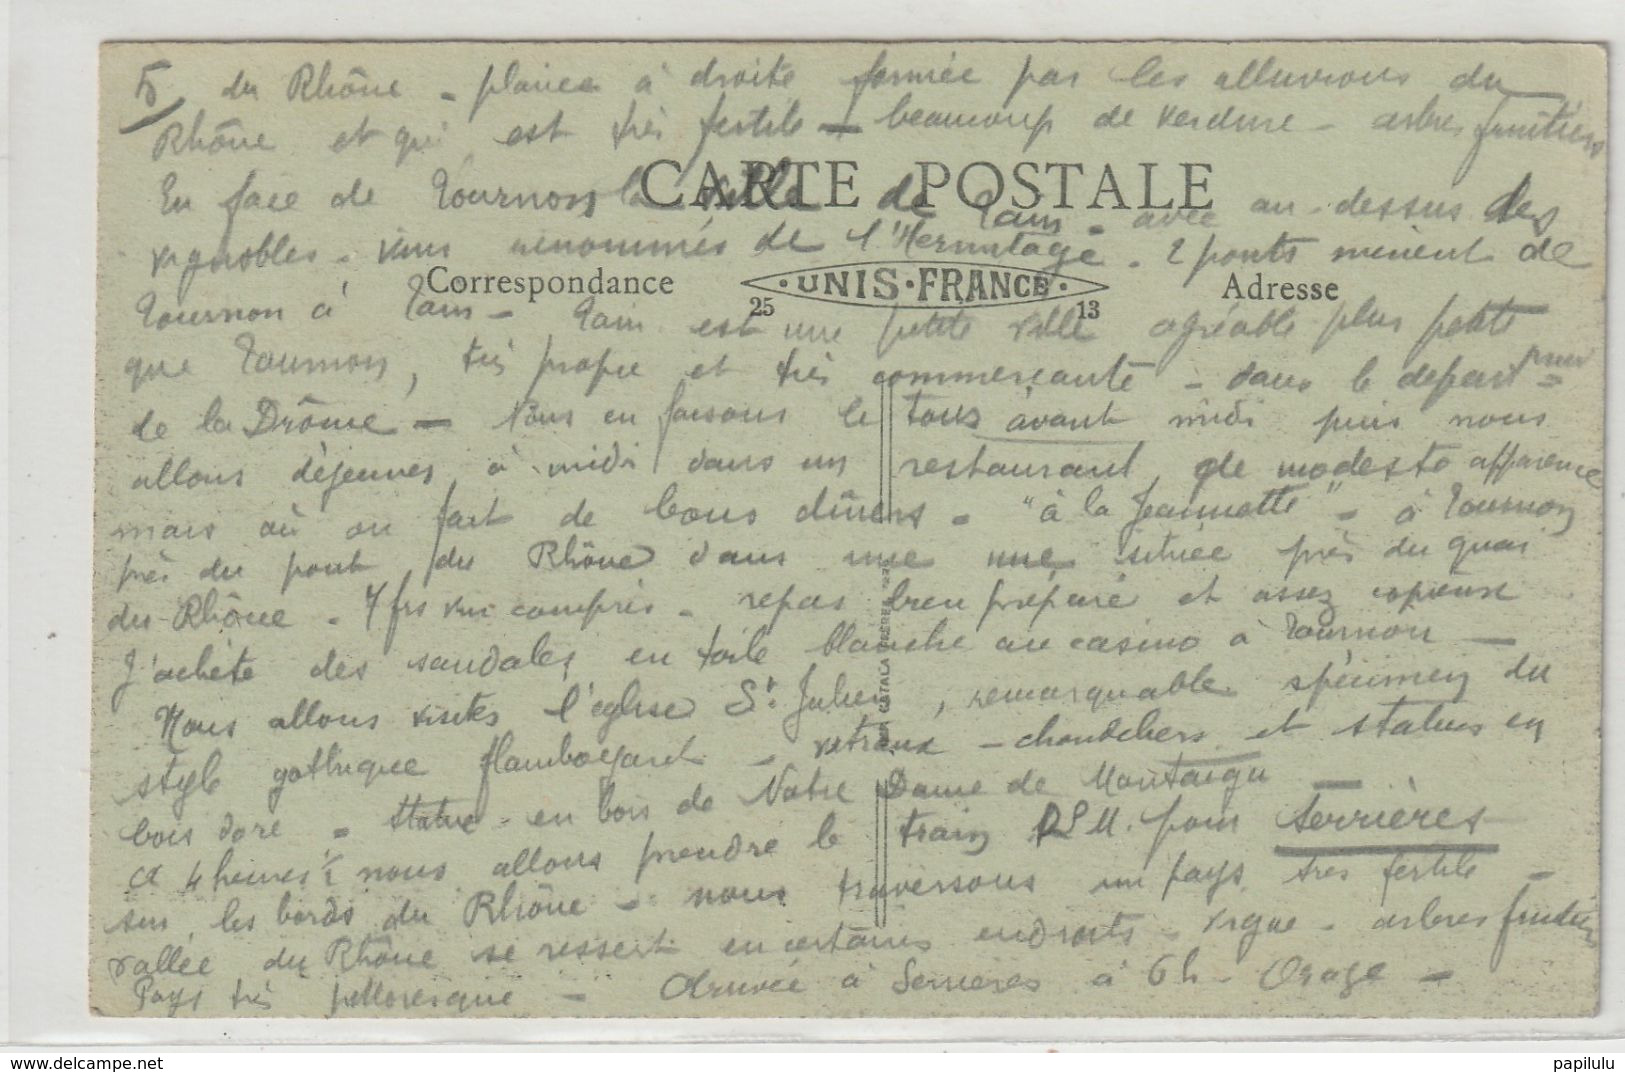 5 du Rhône - plaine à droite formée par les alluvions du
Rhône et qui est très fertile - beaucoup de verdure - arbres fruitiers
CARTE POSTALE
En face de Tournon la ville de Tain - avec au-dessus des
vignobles - vins renommés de l'Hermitage - 2 ponts mènent de
Correspondance UNIS-FRANCE Adresse
25 13
Tournon à Tain - Tain est une petite ville agréable plus petite
que Tournon, très propre et très commerçante - dans le départ
de la Drôme - Nous en faisons le tour avant midi puis nous
allons déjeuner à midi dans un restaurant de modeste apparence
mais où on fait de bons dîners - "à la Jeannette" - à Tournon
près du pont du Rhône dans une rue située près du quai
du Rhône - 7 frs vin compris - repas bien préparé et assez copieux
J'achète des sandales en toile blanche au casino à Tournon -
Nous allons visiter l'église St Julien, remarquable spécimen du
style gothique flamboyant - vitraux - chandeliers et statues en
bois doré - statue en bois de Notre Dame de Montaigu -
a 4 heures ½ nous allons prendre le train P.L.M. pour Serrières
sur les bords du Rhône - nous traversons un pays très fertile -
vallée du Rhône se ressert en certains endroits - vigne - arbres fruitiers
Pays très pittoresque - Arrivée à Serrières à 6 h - Orage -
papilulu